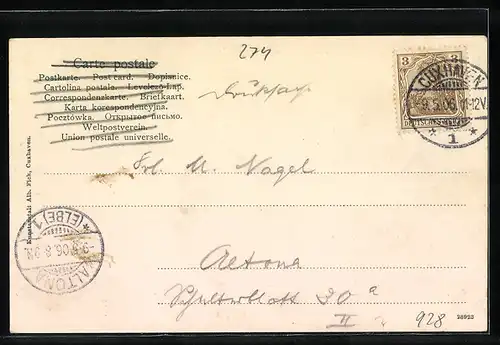 274
Carte postale
Postkarte. Post card. Dopisnice.
Cartolina postale. Levelező-Lap.
Correspondenzkarte. Briefkaart.
Karta korespondencyjna.
Pocztówka. Открытое письмо.
Weltpostverein.
Union postale universelle.
Drucksache
3 3
DEUTSCHES REICH
CUXHAVEN
9.5.06. 11-12V.
* 1 *
Kunstverlag Alb. Pich, Cuxhaven.
Frl. M. Nagel
Altona
Schulterblatt 30 a
II
ALTONA
(ELBE) 1
928
28923